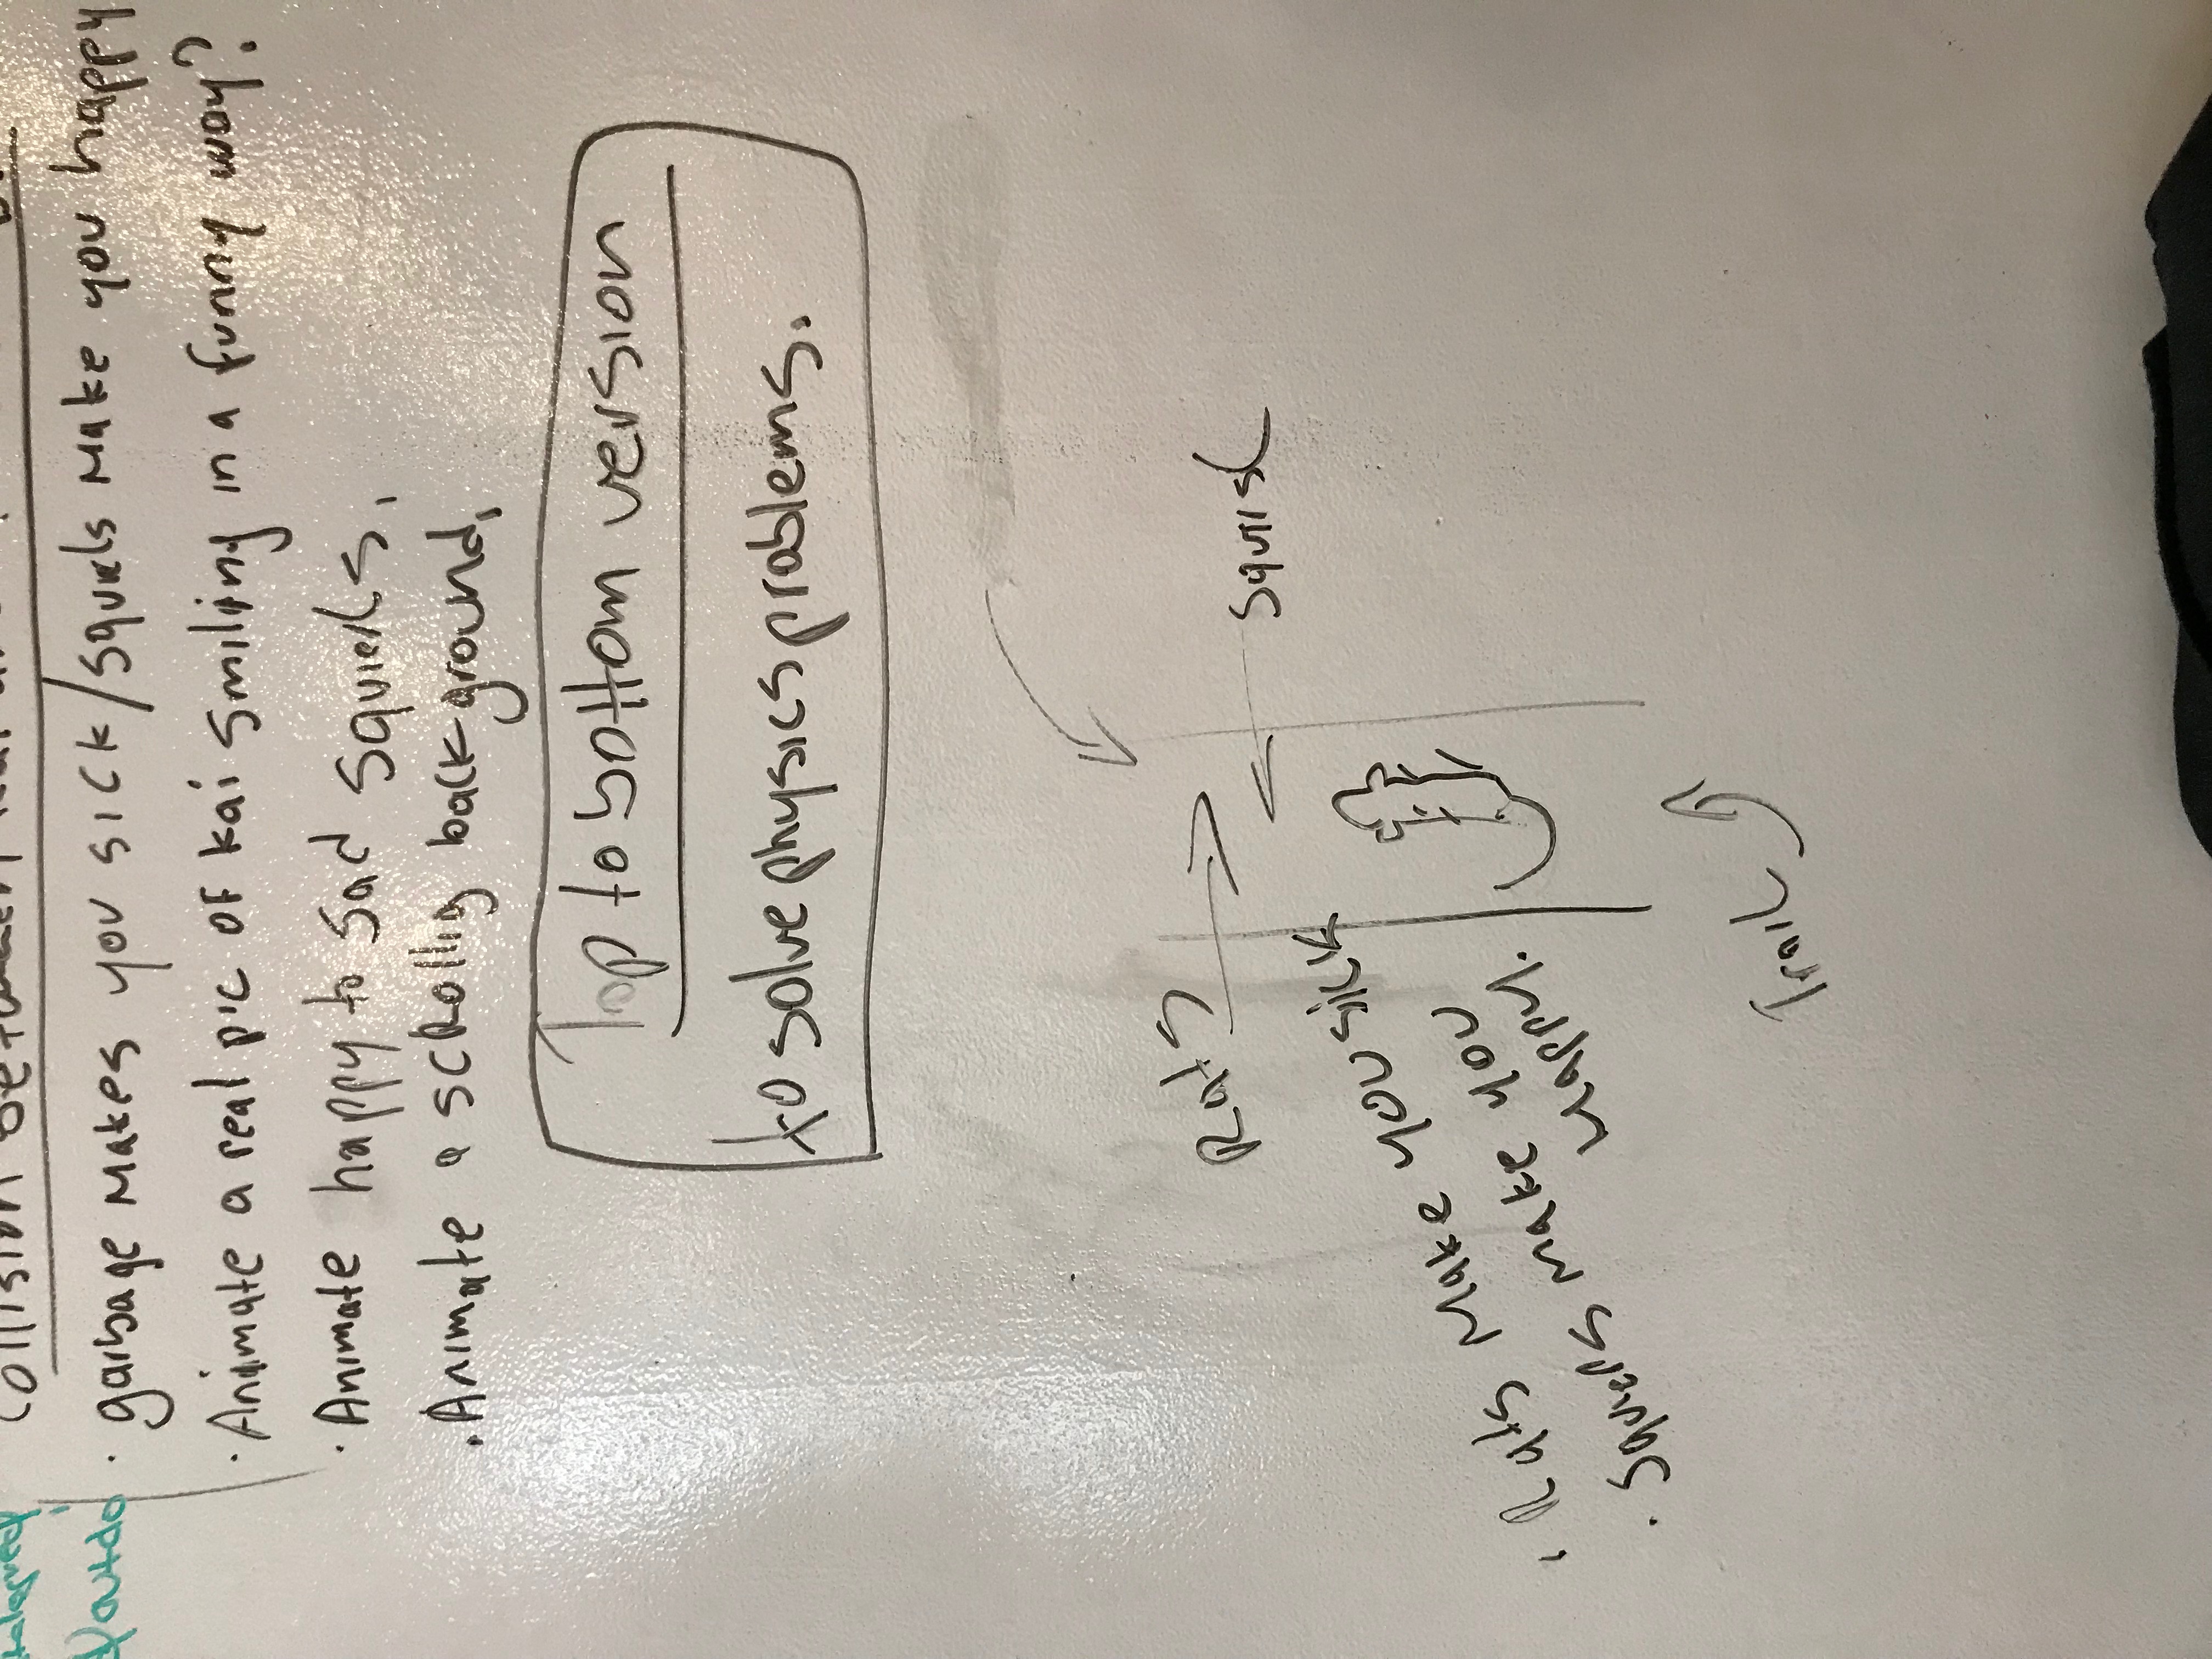 Collision Between
garbage makes you sick/squirls make you happy
Animate a real pic of kai smiling in a funny way?
Animate happy to sad squierls.
Animate a scRollig background,
Top to bottom version
to solve physics problems.
Rats
Squirsl
• Rats Make you sick
• Squiers make you
Happy.
Trail